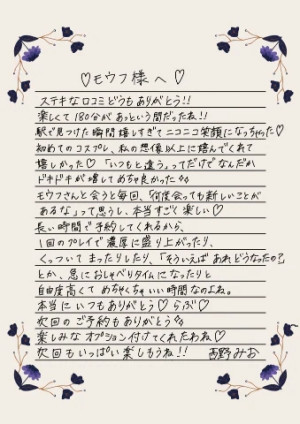 ♡モウフ様へ♡
ステキな口コミどうもありがとう!!
楽しくて180分があっという間だったね!!
駅で見つけた瞬間嬉しすぎてニコニコ笑顔になっちゃった♡
初めてのコスプレ、私の想像以上に喜んでくれて
嬉しかった♡「いつもと違う」ってだけでなんだか
ドキドキが増してめちゃ良かった
モウフさんと会うと毎回、「何度会っても新しいことが
あるな」って思うし、本当すごく楽しい♡
長い時間で予約してくれるから、
1回のプレイで濃厚に盛り上がったり、
くっついてまったりしたり、「そういえばあれどうなったの?」
とか、急におしゃべりタイムになったりと
自由度高くてめちゃくちゃいい時間なのよね。
本当にいつもありがとう♡らぶ♡
次回のご予約もありがとう
楽しみなオプション付けてくれたわね♡
次回もいっぱい楽しもうね!! 西野みお